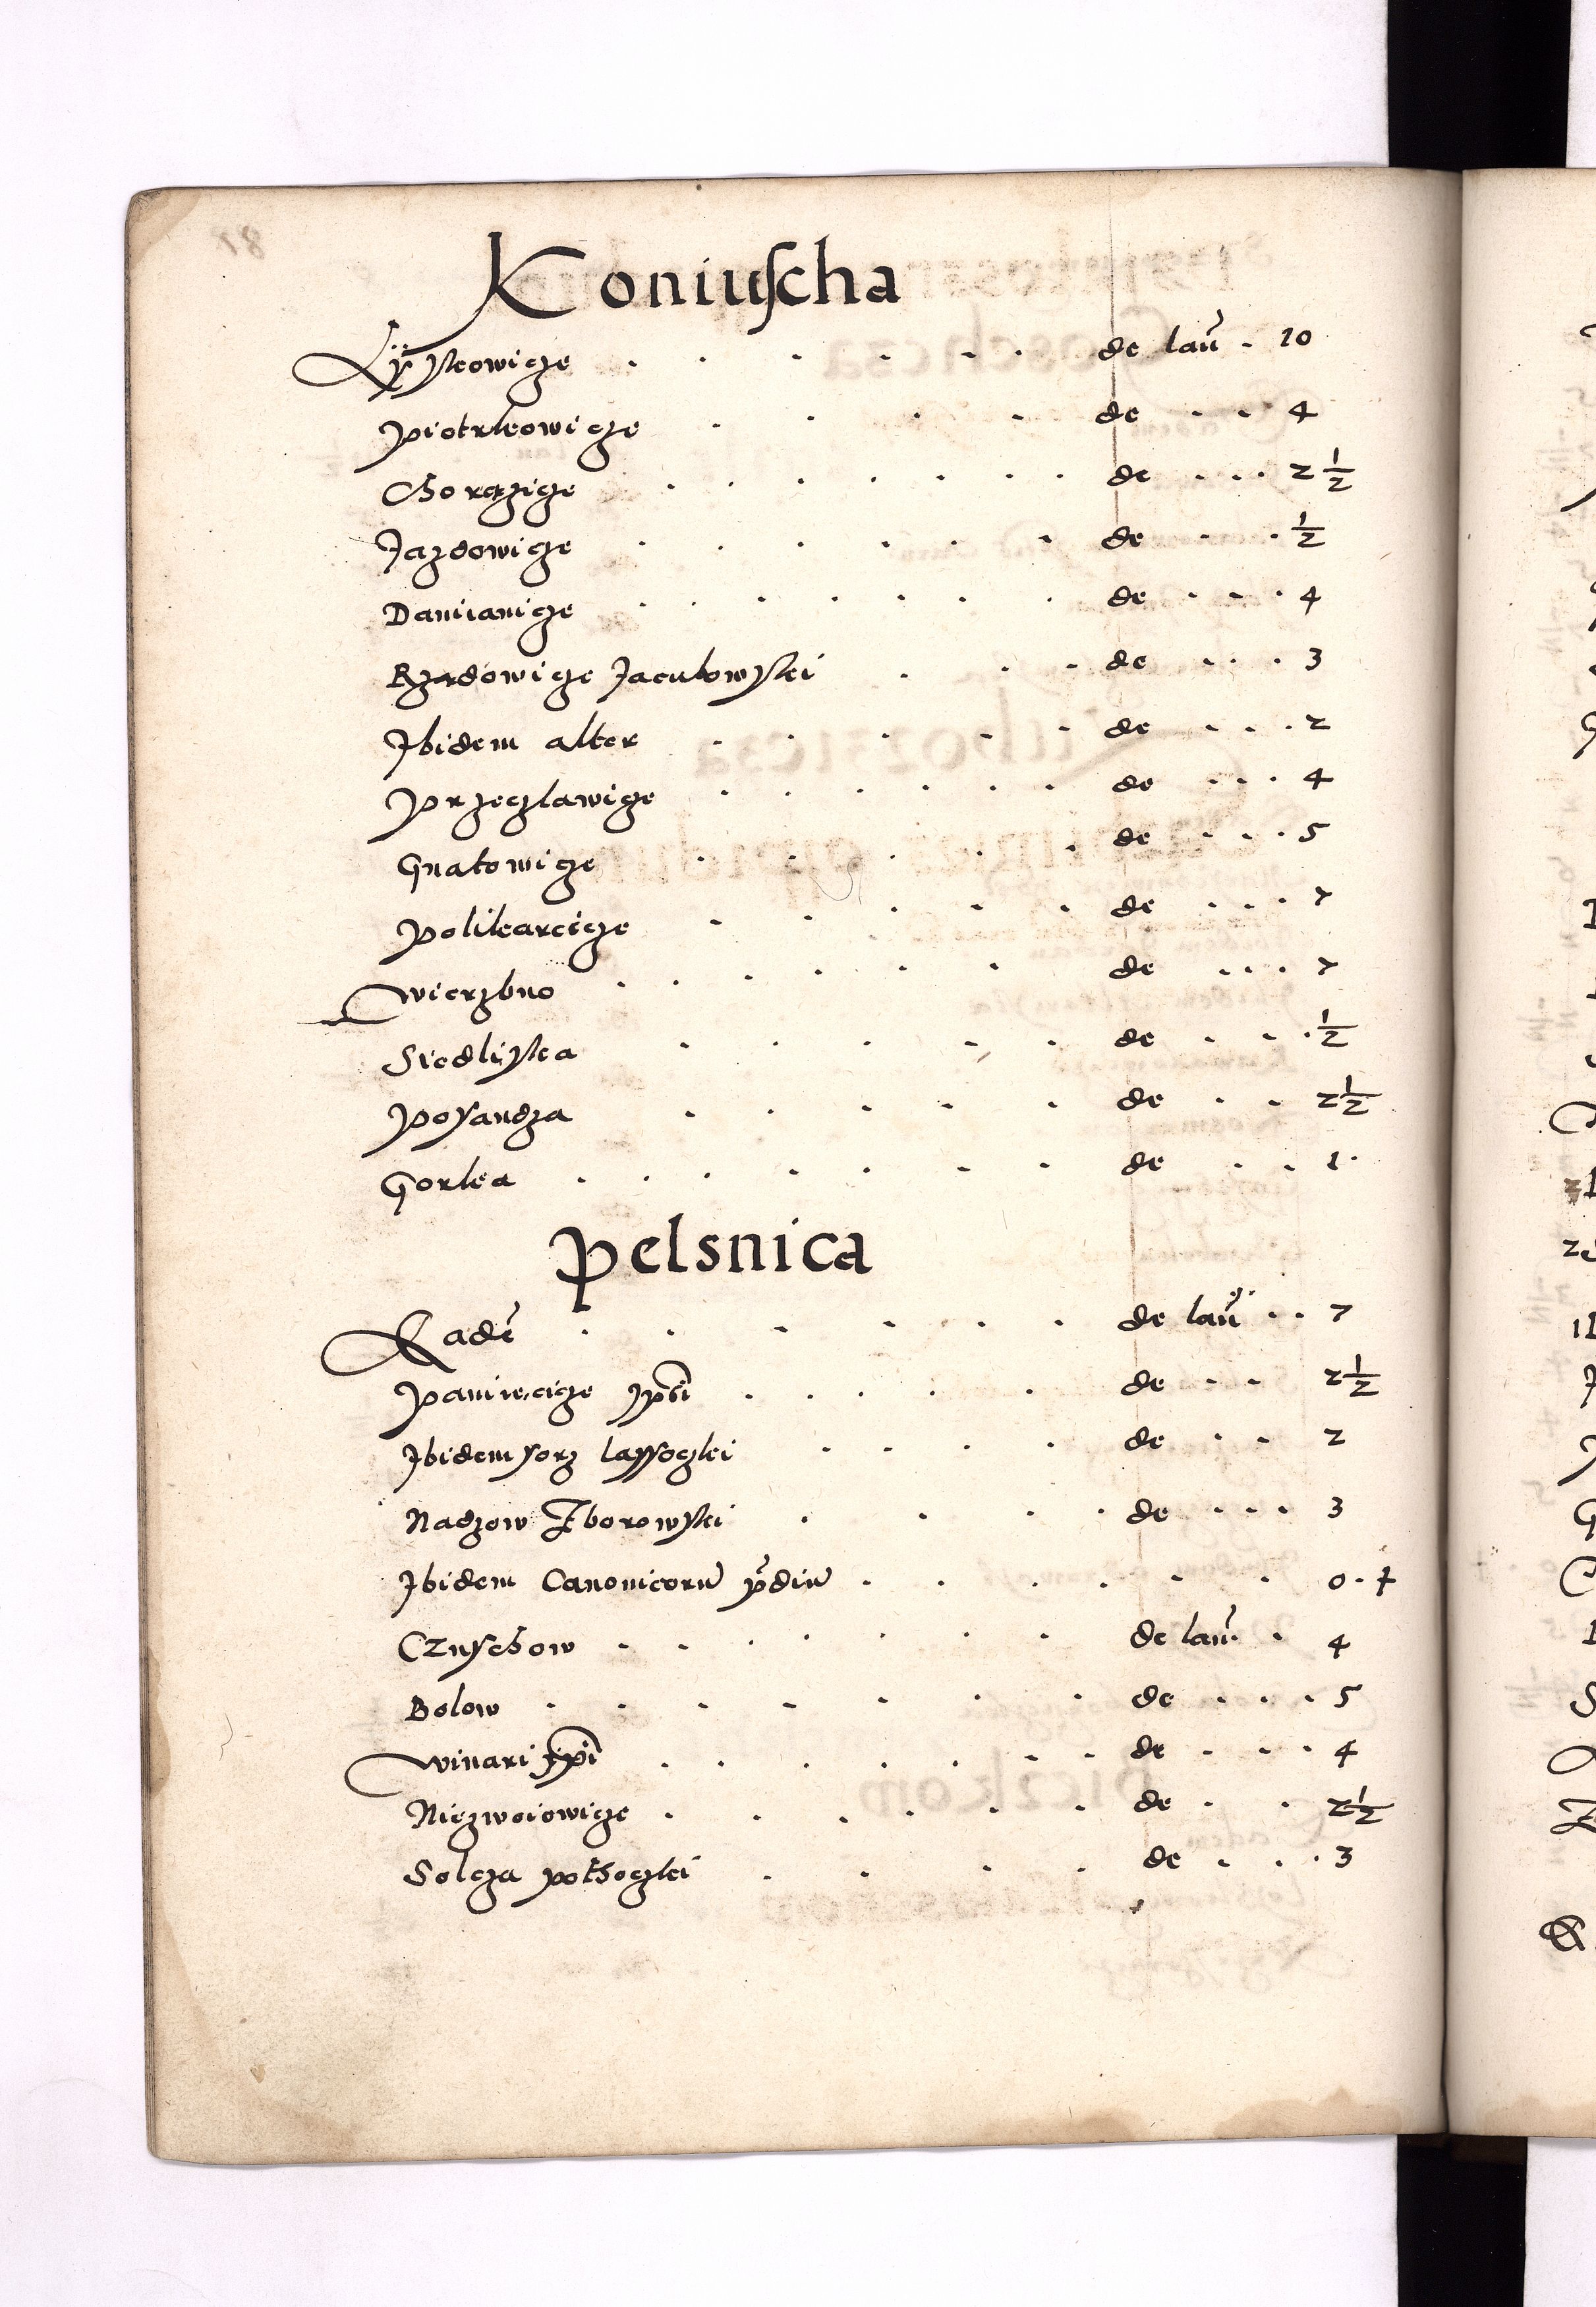 Koniuscha
Lÿskowicze . . . . . . de lan̄ . 10
Piotrkowicze . . . . de . . 4
Gorzcicze . . . . . . . de . . . 2 1/2
Jazdowicze . . . . . . de . . . 1/2
Damianicze . . . . . . . de . . . 4
Rzędowicze Jacubowskei . . . de . . . 3
Jbidem alter . . . . . de . . . 2
Przeczlawicze . . . . . . de . . . 4
Gnatowicze . . . . . de . . . 5
Polikarcicze . . . . . de . . . 7
Wierzbno . . . . . . de . . . 7
Siedliska . . . . . de . . . 1/2
Posandza . . . . . de . . 2 1/2
Gorka . . . . . . . de . . 1.
Pelsnica
Eadē . . . . . . de lan̄ . . 7
Paniewicze . . . . . de . . 2 1/2
Jbidem sorz lassoczkei . . . . de . . 2
Nadzow Zborowskei . . . . de . . . 3
Jbidem Canonicorū p̄diū . . . . . . 0 . †
Czuschow . . . . . . . de lan̄ . 4
Bolow . . . . . . . de . . . 5
Winari . . . . . . . de . . . 4
Niezwoiowicze . . . . . . de . . 2 1/2
Solcza pothoczkei . . . . de . . . 3